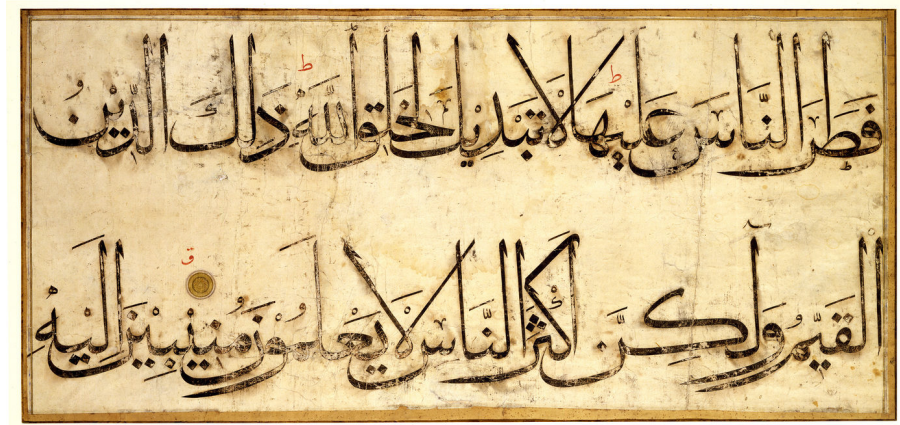 فَطَرَ النَّاسَ عَلَيْهَا ط لَا تَبْدِيلَ لِخَلْقِ اللَّهِ ط ذَٰلِكَ الدِّينُ
الْقَيِّمُ وَلَٰكِنَّ أَكْثَرَ النَّاسِ لَا يَعْلَمُونَ ق مُنِيبِينَ إِلَيْهِ